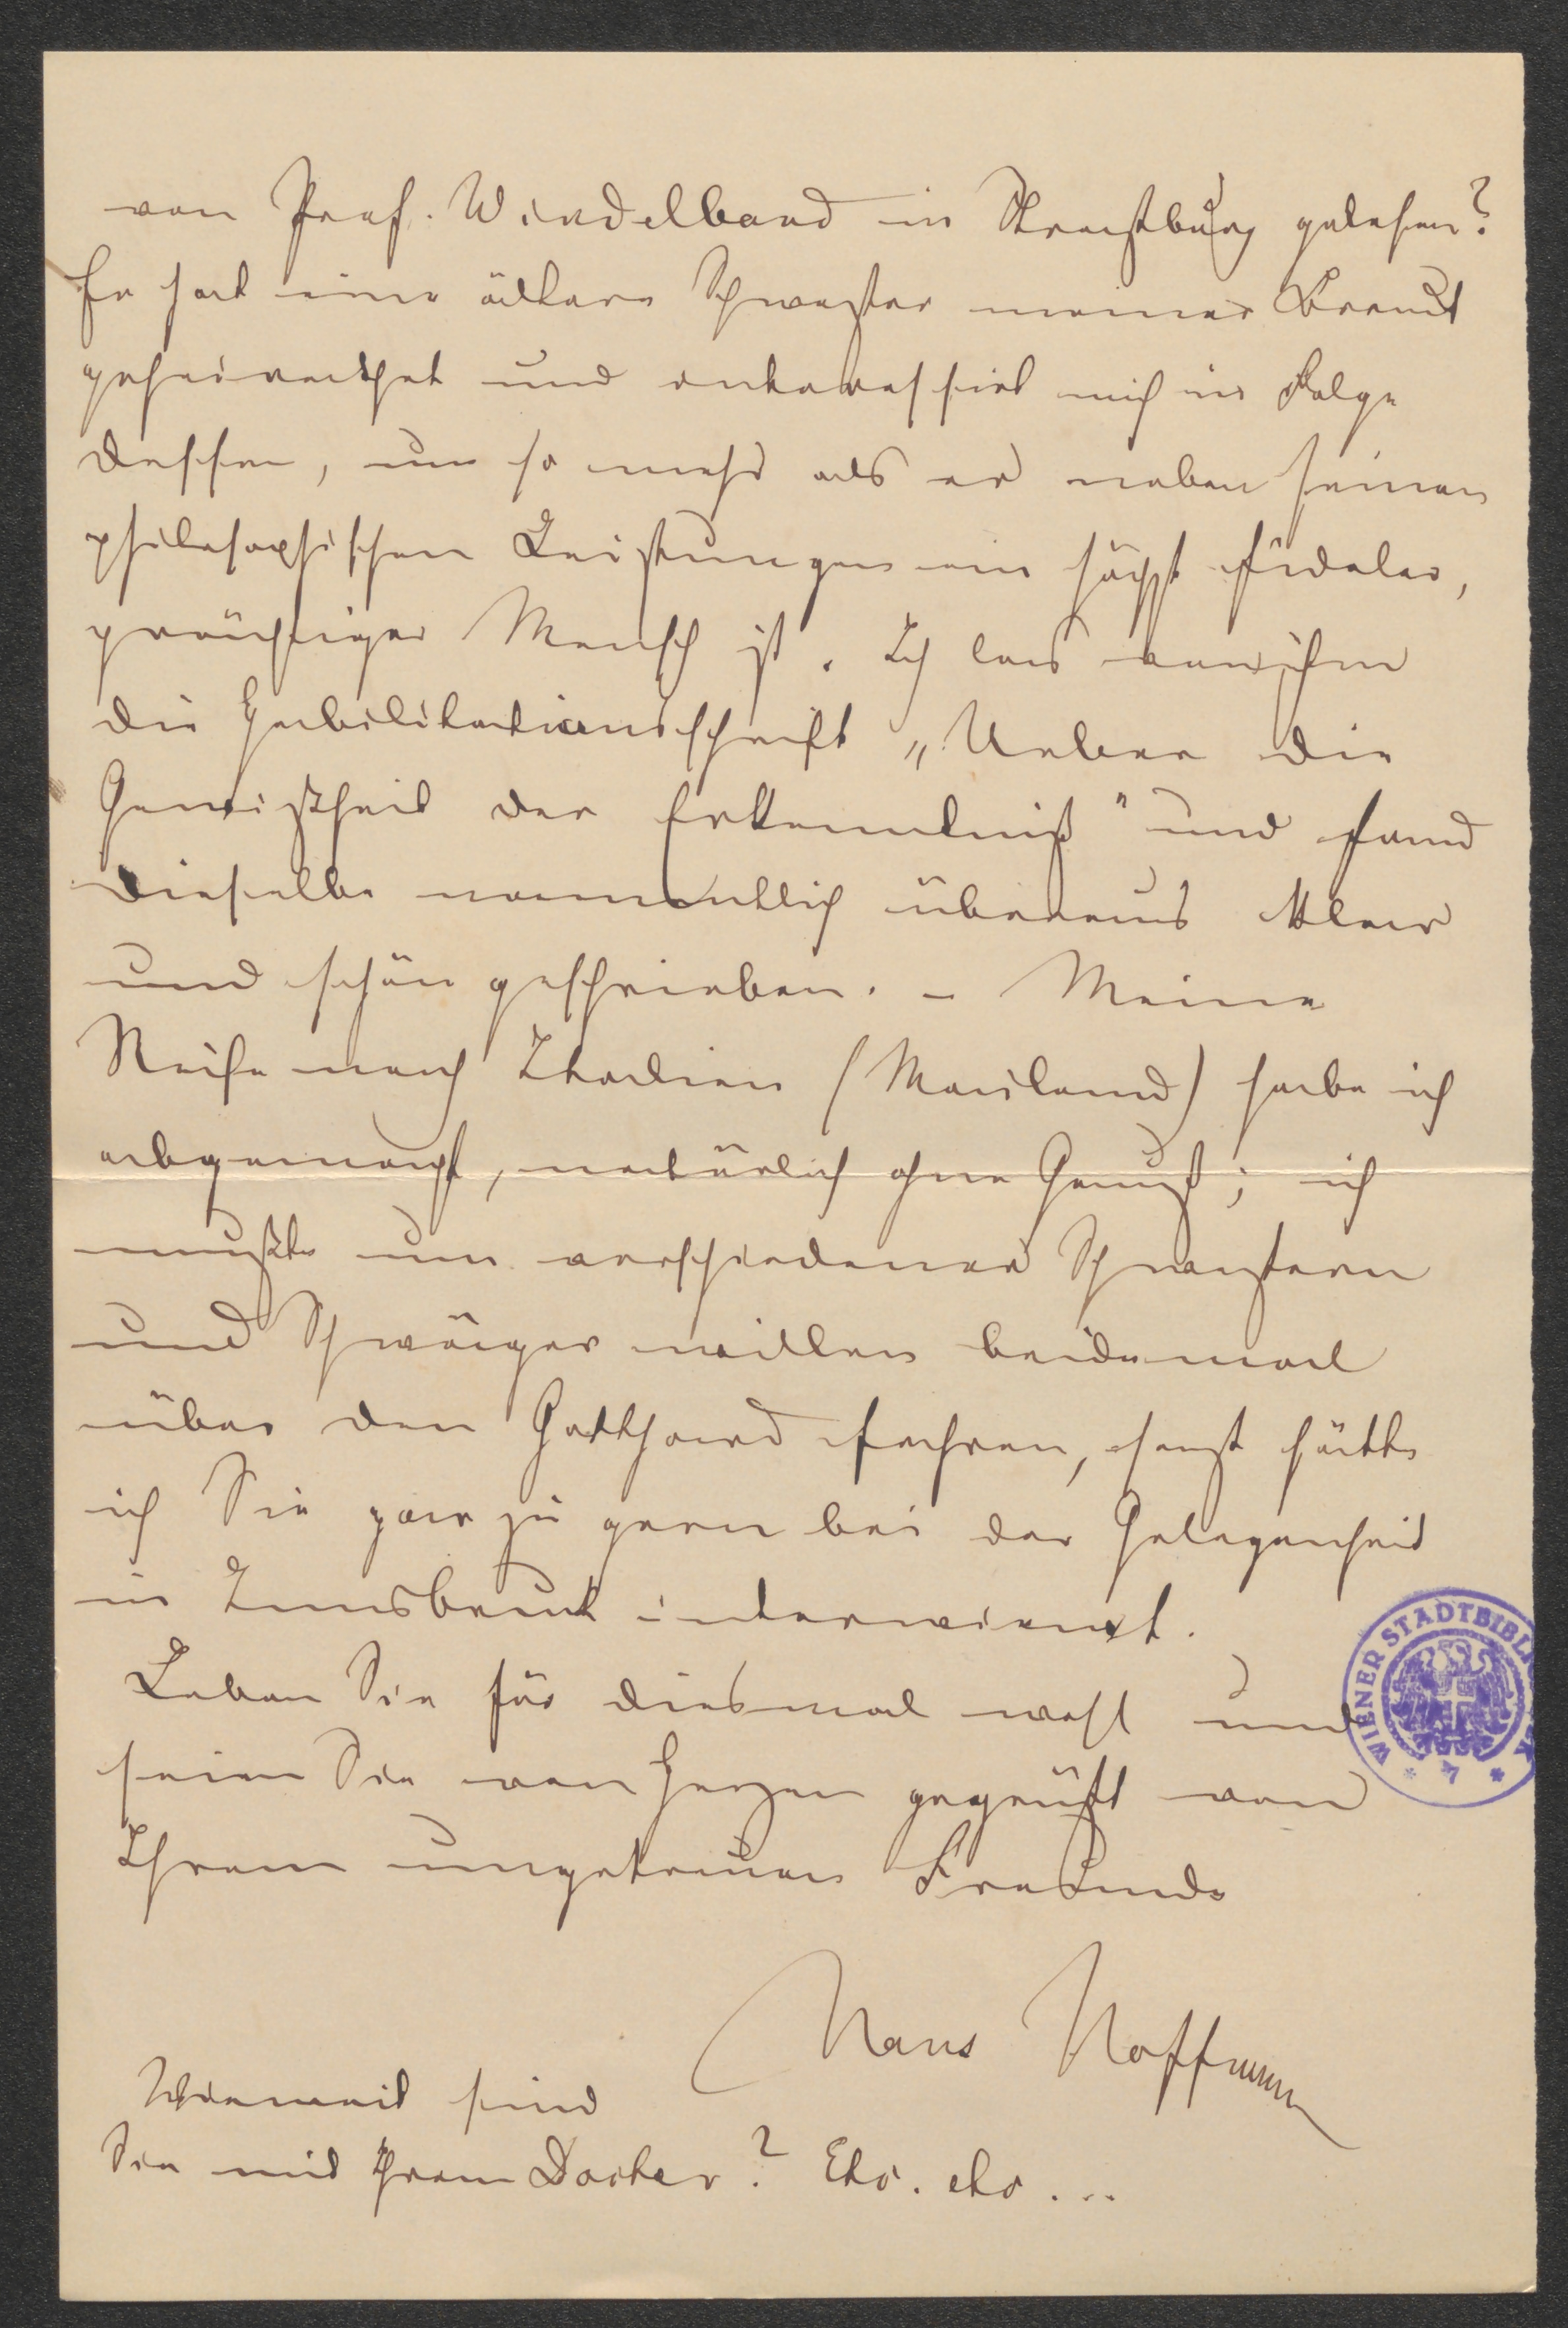 von Prof. Windelband in Straßburg gelesen?
Er hat eine ältere Schwester meiner Braut
geheirathet und interessirt mich in Folge
dessen, um so mehr als er neben seinen
philosophischen Leistungen ein höchst fideler,
prächtiger Mensch ist. Ich las von ihm
die Habilitationsschrift „Ueber die
Gewißheit der Erkenntniß" und fand
dieselbe namentlich überaus klar
und schön geschrieben. – Meine
Reise nach Italien (Mailand) habe ich
abgemacht, natürlich ohne Genuß; ich
mußte um verschiedener Schwestern
und Schwäger willen beidemal
über den Gotthard fahren, sonst hätte
ich Sie gar zu gern bei der Gelegenheit
in Innsbruck interviewt.
Leben Sie für diesmal wohl und
seien Sie von Herzen gegrüßt von
Ihrem ungetreuen Freunde
Hans Hoffmann
Wieweit sind
Sie mit Ihrem Doctor? Etc. etc. ...
WIENER STADTBIBLIOTHEK